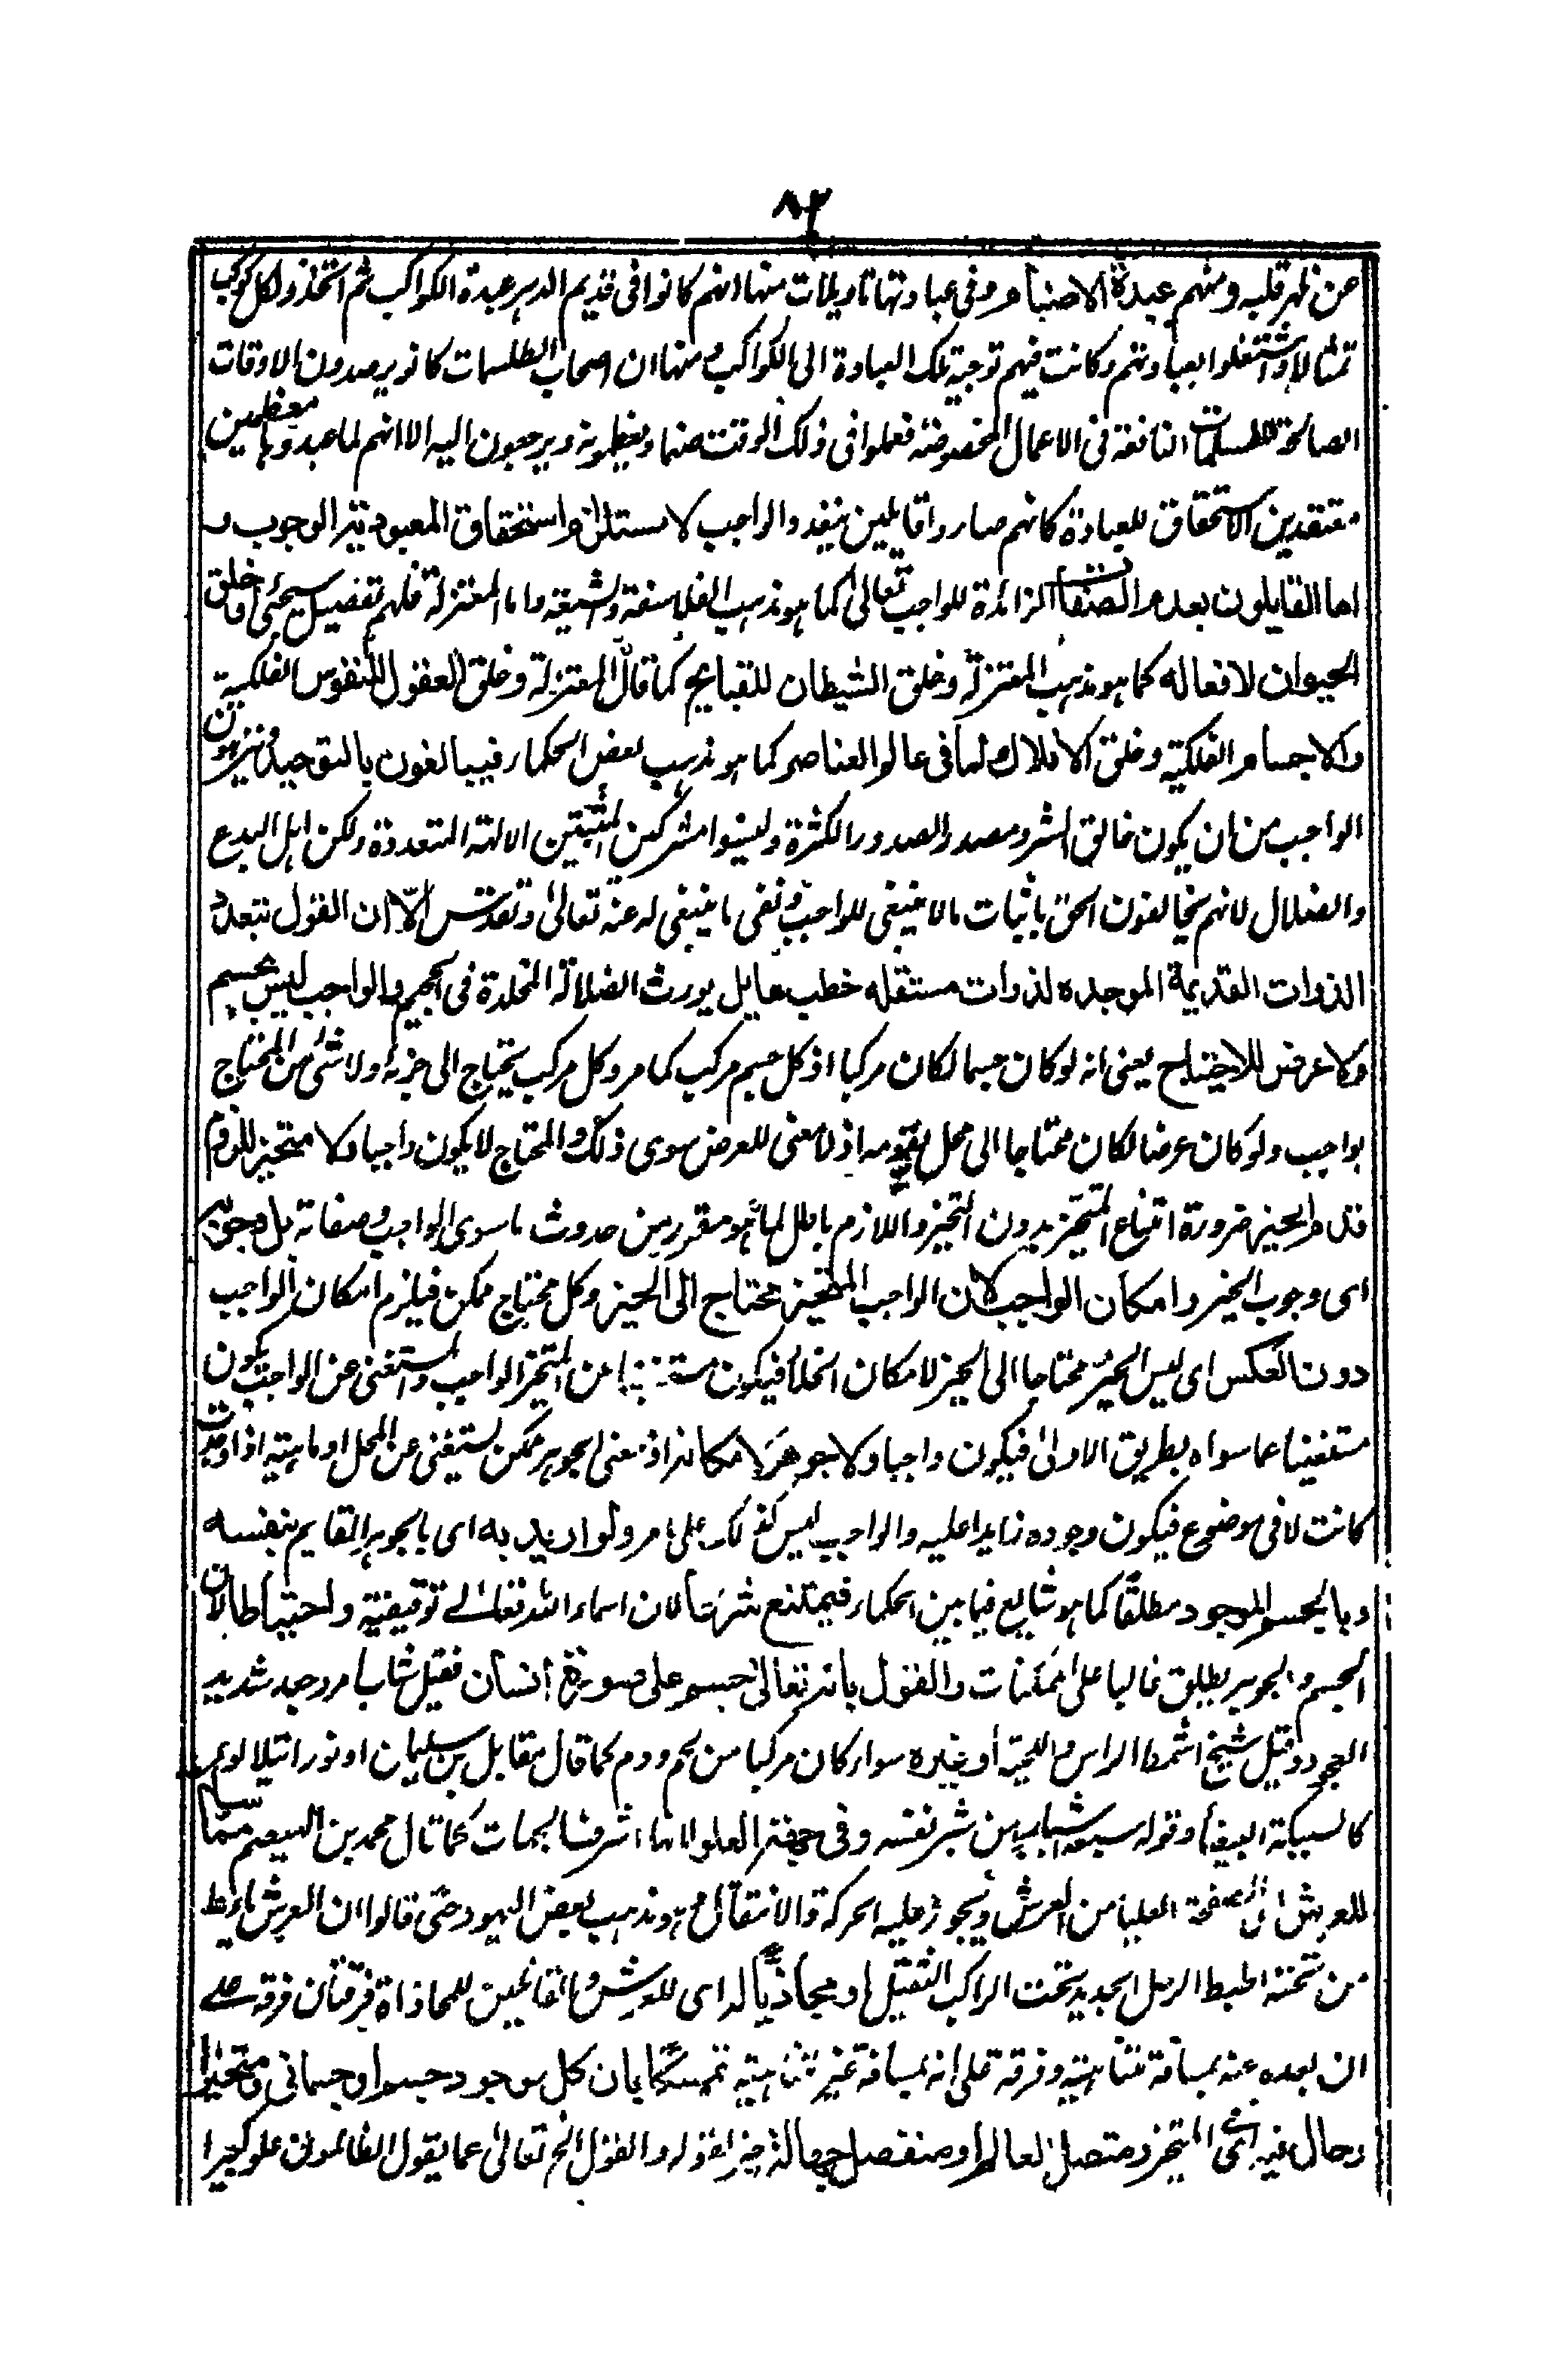 ٨٣
عن ظهر قلبه ومنهم عبدة الاصنام وفى عبادتها تاويلات منها انهم كانوا فى قديم الدهر عبدة الكواكب ثم اتخذوا لكل كوكب
تمثالا واشتغلوا بعبادتهم وكانت فيهم توجيه تلك العبادة الى الكواكب ومنها ان اصحاب الطلسمات كانو يرصدون الاوقات
الصالحة للطلسمات النافعة فى الاعمال المخصوصة فعملوا فى ذلك الوقت صنما ويعظمونه ويرجعون اليه الا انهم لما عبدوها معظمين
معتقدين الاستحقاق للعبادة كانهم صاروا قايلين بتعدد الواجب لاستلزام استحقاق المعبودية الوجوب و
اما القايلون بعدم الصفات الزائدة للواجب تعالى كما هو مذهب الفلاسفة والشيعة واما المعتزلة فلهم تفصيل سيجئ وخلق
الحيوان لافعاله كما هو مذهب المعتزلة وخلق الشيطان للقبايح كما قال المعتزلة وخلق العقول للنفوس الفلكية
والاجسام الفلكية وخلق الافلاك لما فى عالم العناصر كما هو مذهب بعض الحكماء فيبالغون بالتوحيد وينزهون
الواجب من ان يكون خالق الشر ومصدر الصدور الكثرة وليسوا مشركين المثبتين الالهة المتعددة ولكن اهل البدع
والضلال لانهم يخالفون الحق باثبات ما لا ينبغى للواجب ونفى ما ينبغى له عنه تعالى وتقدس الا ان القول بتعدد
الذوات القديمة الموجده لذوات مستقله خطب هايل يورث الضلالة المخلدة فى الجحيم والواجب ليس بجسم
ولا عرض للاحتياج يعنى انه لو كان جسما لكان مركبا اذ كل جسم مركب كما مر وكل مركب يحتاج الى جزئه ولا شئ من المحتاج
بواجب ولو كان عرضا لكان محتاجا الى محل يقومه اذ لا معنى للعرض سوى ذلك والمحتاج لا يكون واجبا ولا متحيز للزوم
قدم الحيز ضرورة امتناع المتحيز بدون التحيز واللازم باطل لما هو مقرر من حدوث ما سوى الواجب وصفاته بل وجوبه
اى وجوب الحيز وامكان الواجب لان الواجب المتحيز محتاج الى الحيز وكل محتاج ممكن فيلزم امكان الواجب
دون العكس اى ليس الحيز محتاجا الى الحيز لامكان الخلأ فيكون مستغنيا عن المتحيز الواجب والمستغنى عن الواجب يكون
مستغنيا عما سواه بطريق الاولى فيكون واجبا ولا جوهر لامكانه اذ معنى الجوهر ممكن يستغنى عن المحل او ماهية اذا وجدت
كانت لا فى موضوع فيكون وجوده زايدا عليه والواجب ليس كذلك على ما مر ولو اريد به اى بالجوهر القايم بنفسه
وبالجسم الموجود مطلقا كما هو شايع فيما بين الحكماء فيمتنع شرعا لان اسماء الله تعالى توقيفية واحتياطا لان
الجسم والجوهر يطلق غالبا على الممكنات والقول بانه تعالى جسم على صورة انسان فقيل شاب امرد جعد شديد
الجعودة وقيل شيخ اشمط الراس واللحية او غيره سواء كان مركبا من لحم ودم كما قال مقابل بن سليمان او نورا يتلالا
كالسبيكة البيضاء وقوله سبعة اشبار من شبر نفسه وفى جهة العلو لانها اشرف الجهات كما قال محمد بن الهيصم مماسا
للعرش اى الصفحة العليا من العرش ويجوز عليه الحركة والانتقال وهو مذهب بعض اليهود حتى قالوا ان العرش ياط
من تحته اطيط الرحل الجديد تحت الراكب الثقيل او محاذيا له اى للعرش والقائلين للمحاذاة فرقتان فرقة على
ان بعده عنه بمسافة متناهية وفرقة على انه بمسافة غير متناهية تمسكا بان كل موجود جسم او جسمانى ومتحيز
وحال فيه اى المتحيز ومتصل العالم او منفصل جهالة خبر لقوله والقول الخ تعالى عما يقول الظالمون علوا كبيرا